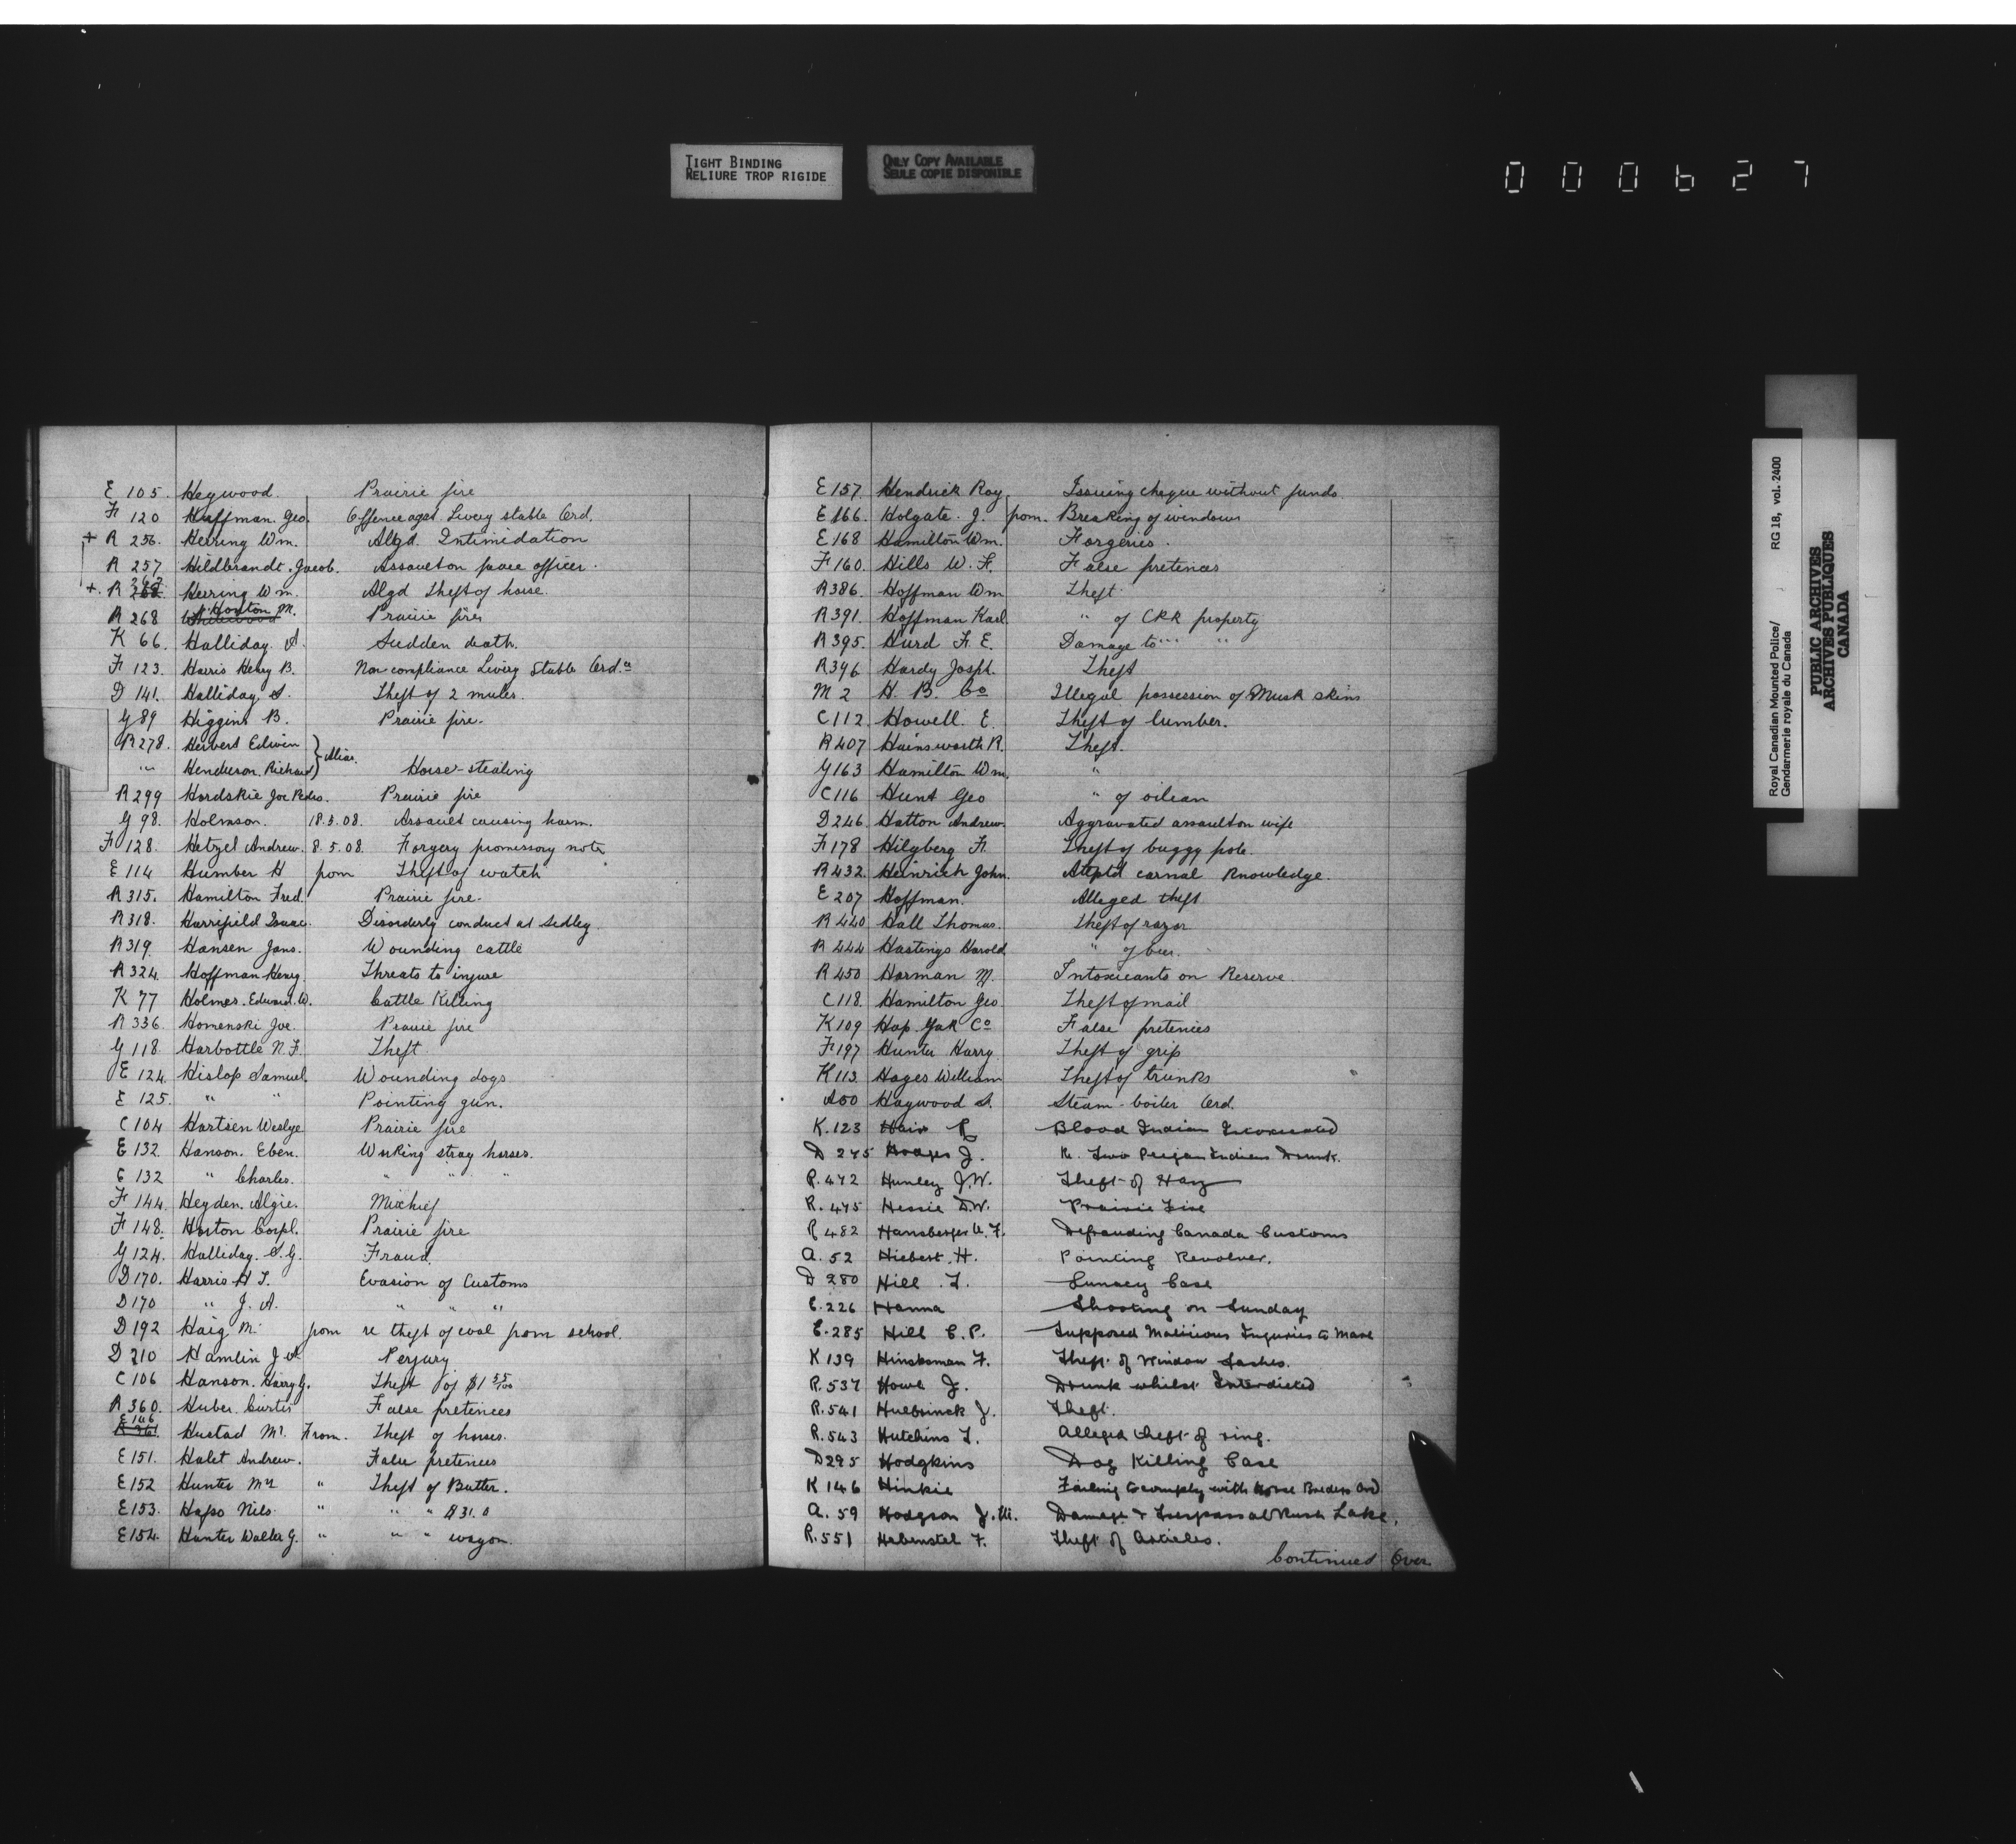 TIGHT BINDING
RELIURE TROP RIGIDE
ONLY COPY AVAILABLE
SEULE COPIE DISPONIBLE
000627
E 105. Heywood. Prairie fire
F 120 Huffman. Geo. Offence agst. Livery stable Ord.
+ R 256. Herring Wm. Algd. Intimidation
R 257 Hildbrandt. Jacob. Assault on peace officer.
+. R 262 Herring Wm. Algd Theft of horse.
R 268 Horton M. Prairie fire
K 66. Halliday. A. Sudden death.
F 123. Harris Henry B. Non-compliance Livery Stable Ord.ce
D 141. Halliday. A. Theft of 2 mules.
G 89 Higgins B. Prairie fire.
R 278. Herbert Edwin
" Henderson. Richard } Alias. Horse-stealing
R 299 Hordskie Joe Prairie fire
G 98. Holmson. 18.5.08. Assault causing harm.
F 128. Hetzel Andrew. 8.5.08. Forgery promissory note
E 114 Humber H from Theft of watch
R 315. Hamilton Fred. Prairie fire.
R 318. Harrifield Isaac. Disorderly conduct at Sedley.
R 319. Hansen Jans. Wounding cattle
R 324. Hoffman Henry. Threats to injure
K 77 Holmes. Edward. W. Cattle Killing
R 336. Homenski Joe. Prairie fire
G 118. Harbottle N. F. Theft.
E 124. Hislop Samuel. Wounding dogs
E 125. " " Pointing gun.
C 104 Hartsen Weslye Prairie fire
E 132. Hanson. Eben. Working stray horses.
E 132 " Charles. " " "
F 144. Heyden. Algie. Mischief
F 148. Horton Corpl. Prairie fire
G 124. Halliday. S. G. Fraud.
D 170. Harris H T. Evasion of Customs
D 170 " J. A. " " "
D 192 Haig M. from re theft of coal from school.
D 210 Hamlin J A Perjury
C 106 Hanson. Harry G. Theft of $1 55/100
R 360. Huber. Curtis False pretences
E 146 Hustad Mr. From. Theft of horses.
E 151. Halet Andrew. False pretences
E 152 Hunter Mrs " Theft of Butter.
E 153. Hapo Nils. " " " $31.0
E 154. Hunter Walter G. " " " wagon.
E 157. Hendrick Roy. Issuing cheque without funds
E 166. Holgate. J. from. Breaking of windows
E 168 Hamilton Wm. Forgeries.
F 160. Hills W. F. False pretences
R 386. Hoffman Wm Theft
R 391. Hoffman Karl. " of CPR property
R 395. Hurd F. E. Damage to " "
R 396 Hardy Josph. Theft
M 2 H. B. Co Illegal possession of Musk skins
C 112. Howell. E. Theft of lumber.
R 407 Hainsworth R. Theft.
G 163 Hamilton Wm. "
C 116 Hunt Geo " of oilcan
D 246. Hatton Andrew. Aggravated assault on wife
F 178 Hilgberg F. Theft of buggy pole.
R 432. Heinrich John. Attptd carnal knowledge.
E 207 Hoffman. Alleged theft.
R 440 Hall Thomas. Theft of razor
R 444 Hastings Harold " of beer.
R 450 Harman M. Intoxicants on Reserve.
C 118. Hamilton Geo Theft of mail
K 109 Hop. Yak Co False pretences
F 197 Hunter Harry. Theft of grip
K 113. Hayes William Theft of trunks
A 50 Haywood A. Steam-boiler Ord.
K. 123 Hair R Blood Indian Intoxicated
D 275 Hodges J. Re. Two Peigan Indians Drunk.
R. 472 Hunley J.W. Theft of Hay
R. 475 Hessie D.W. Prairie Fire
R 482 Hansberger A. F. Defrauding Canada Customs
A. 52 Hiebert. H. Pointing Revolver.
D 280 Hill. T. Lunacy Case
E. 226 Hanna Shooting on Sunday
E. 285 Hill C. P. Supposed Malicious Injuries to Mare
K 139 Hinsksman F. Theft of Window Sashes.
R. 537 Howe J. Drunk whilst Interdicted
R. 541 Hulbsinck J. Theft.
R. 543 Hutchins T. Alleged theft of ring.
D 295 Hodgkins Dog Killing Case
K 146 Hinkie Failing to comply with Horse Breeders Ord
A. 59 Hodgson J. M. Damage & Trespass at Rush Lake.
R. 551 Habenstel F. Theft of Articles.
Continued Over
Royal Canadian Mounted Police/ RG 18, vol. 2400
Gendarmerie royale du Canada
PUBLIC ARCHIVES
ARCHIVES PUBLIQUES
CANADA